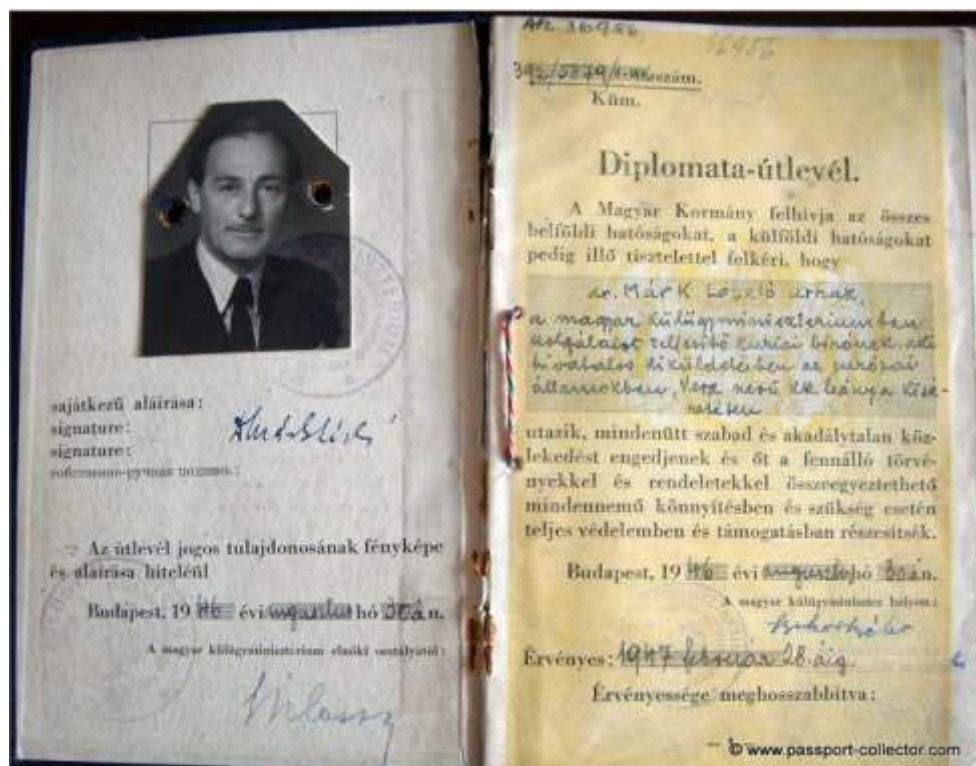 sajátkezű aláírása:
signature:
signature:
собственно-ручная подпись:
Az útlevél jogos tulajdonosának fényképe
és aláírása hiteléül
Budapest, 1946 évi augusztus hó 30án.
A magyar külügyminisztérium elnöki osztályától:
36956
36956
392/5879/ szám.
Küm.
Diplomata-útlevél.
A Magyar Kormány felhivja az összes
belföldi hatóságokat, a külföldi hatóságokat
pedig illő tisztelettel felkéri, hogy
dr. Márk László úrnak,
a magyar külügyminisztériumban
szolgálatot teljesítő kuriai birónak, aki
hivatalos kiküldetésben az európai
államokban, Vera nevű kk. leánya kísé-
retében
utazik, mindenütt szabad és akadálytalan köz-
lekedést engedjenek és őt a fennálló törvé-
nyekkel és rendeletekkel összeegyeztethető
mindennemű könnyítésben és szükség esetén
teljes védelemben és támogatásban részesítsék.
Budapest, 1946 évi augusztus hó 30án.
A magyar külügyminiszter helyett:
Érvényes: 1947 február 28.áig.
Érvényessége meghosszabbítva:
© www.passport-collector.com